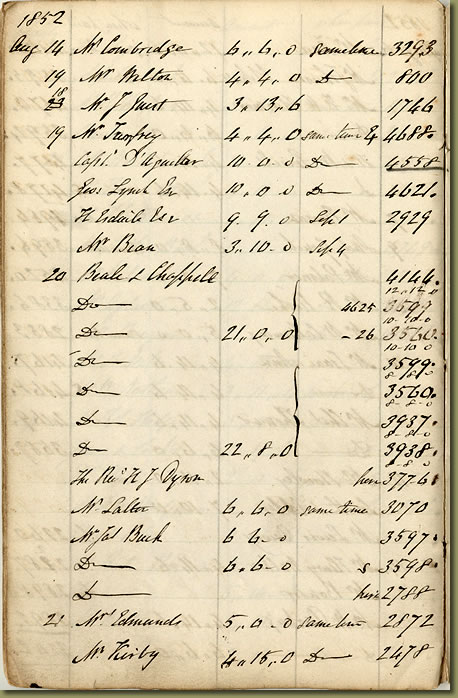 1852
Aug 14 Mr Combridge 6 ,, 6 ,, 0 same time 3293
19 Mr Wilton 4 ,, 4 ,, 0 Do 800
18 Mr J Guest 3 ,, 13 ,, 6 1746
19 Mr 4 ,, 4 ,, 0 same time & 4688.
Capt. D'Aguilar 10 .. 0 .. 0 Do 4558
Geo. Lynch Esr 10 ,, 0 ,, 0 Do 4621.
H Esdaile Esr 9 .. 9 .. 0 Sept 1 2929
Mr Bean 3 ,, 10 .. 0 Sep 4
20 Beale & Chappell 4146.
12 ,, 12 ,, 0
Do 4625 3597
10 .. 10 .. 0
Do 21 ,, 0 ,, 0 - 26 3560.
10 .. 10 .. 0
Do 3599.
8 .. 8 .. 0
Do 3560.
8 .. 8 .. 0
Do 3937.
8 .. 8 .. 0
Do 22 ,, 8 ,, 0 3938.
8 .. 8 .. 0
The Revd H J Dyson here 3776.
Mr Salter 6 ,, 6 ,, 0 same time 3070
Mr Jas Buck 6 6 .. 0 3597.
Do 6 .. 6 .. 0 s 3598.
Do here 2788
21 Mrs Edmunds 5 ,, 0 .. 0 same time 2872
Mr Kirby 4 ,, 15 ,, 0 Do 2478